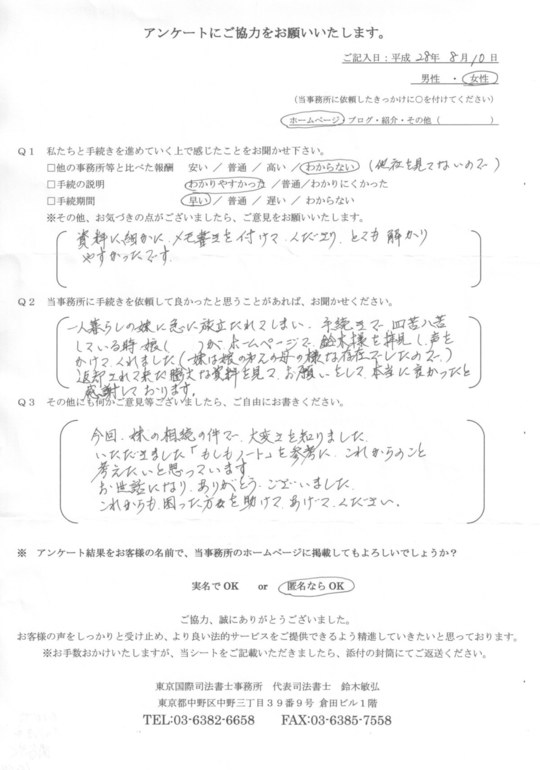 アンケートにご協力をお願いいたします。
ご記入日:平成 28年 8月10日
男性 ・ 女性
(当事務所に依頼したきっかけに○を付けてください)
ホームページ・ブログ・紹介・その他( )
Q1 私たちと手続きを進めていく上で感じたことをお聞かせ下さい。
□他の事務所等と比べた報酬 安い / 普通 / 高い / わからない (他社を見てないので)
□手続の説明 わかりやすかった / 普通 / わかりにくかった
□手続期間 早い / 普通 / 遅い / わからない
※その他、お気づきの点がございましたら、ご意見をお願いいたします。
資料に、細かに、メモ書きを付けて、くださり、とても 解かり
やすかったです。
Q2 当事務所に手続きを依頼して良かったと思うことがあれば、お聞かせください。
一人暮らしの妹に急に旅立たれてしまい、手続きで 四苦八苦
している時、娘( )が、ホームページで、鈴木様を拝見し、声を
かけてくれました(妹は娘の第二の母の様な存在でしたので)
返却されて来た膨大な資料を見て、お願いをして、本当に良かったと
感謝しております。
Q3 その他にも何かご意見等ございましたら、ご自由にお書きください。
今回、妹の相続の件で、大変さを知りました
いただきました「もしもノート」を参考に、これからのこと
考えたいと思っています
お世話になり、ありがとう、ございました。
これからも、困った方々を助けて、あげて、ください。
※ アンケート結果をお客様の名前で、当事務所のホームページに掲載してもよろしいでしょうか?
実名でOK or 匿名ならOK
ご協力、誠にありがとうございました。
お客様の声をしっかりと受け止め、より良い法的サービスをご提供できるよう精進していきたいと思っております。
※お手数おかけいたしますが、当シートをご記載いただきましたら、添付の封筒にてご返送ください。
東京国際司法書士事務所 代表司法書士 鈴木敏弘
東京都中野区中野三丁目39番9号 倉田ビル1階
TEL:03-6382-6658 FAX:03-6385-7558